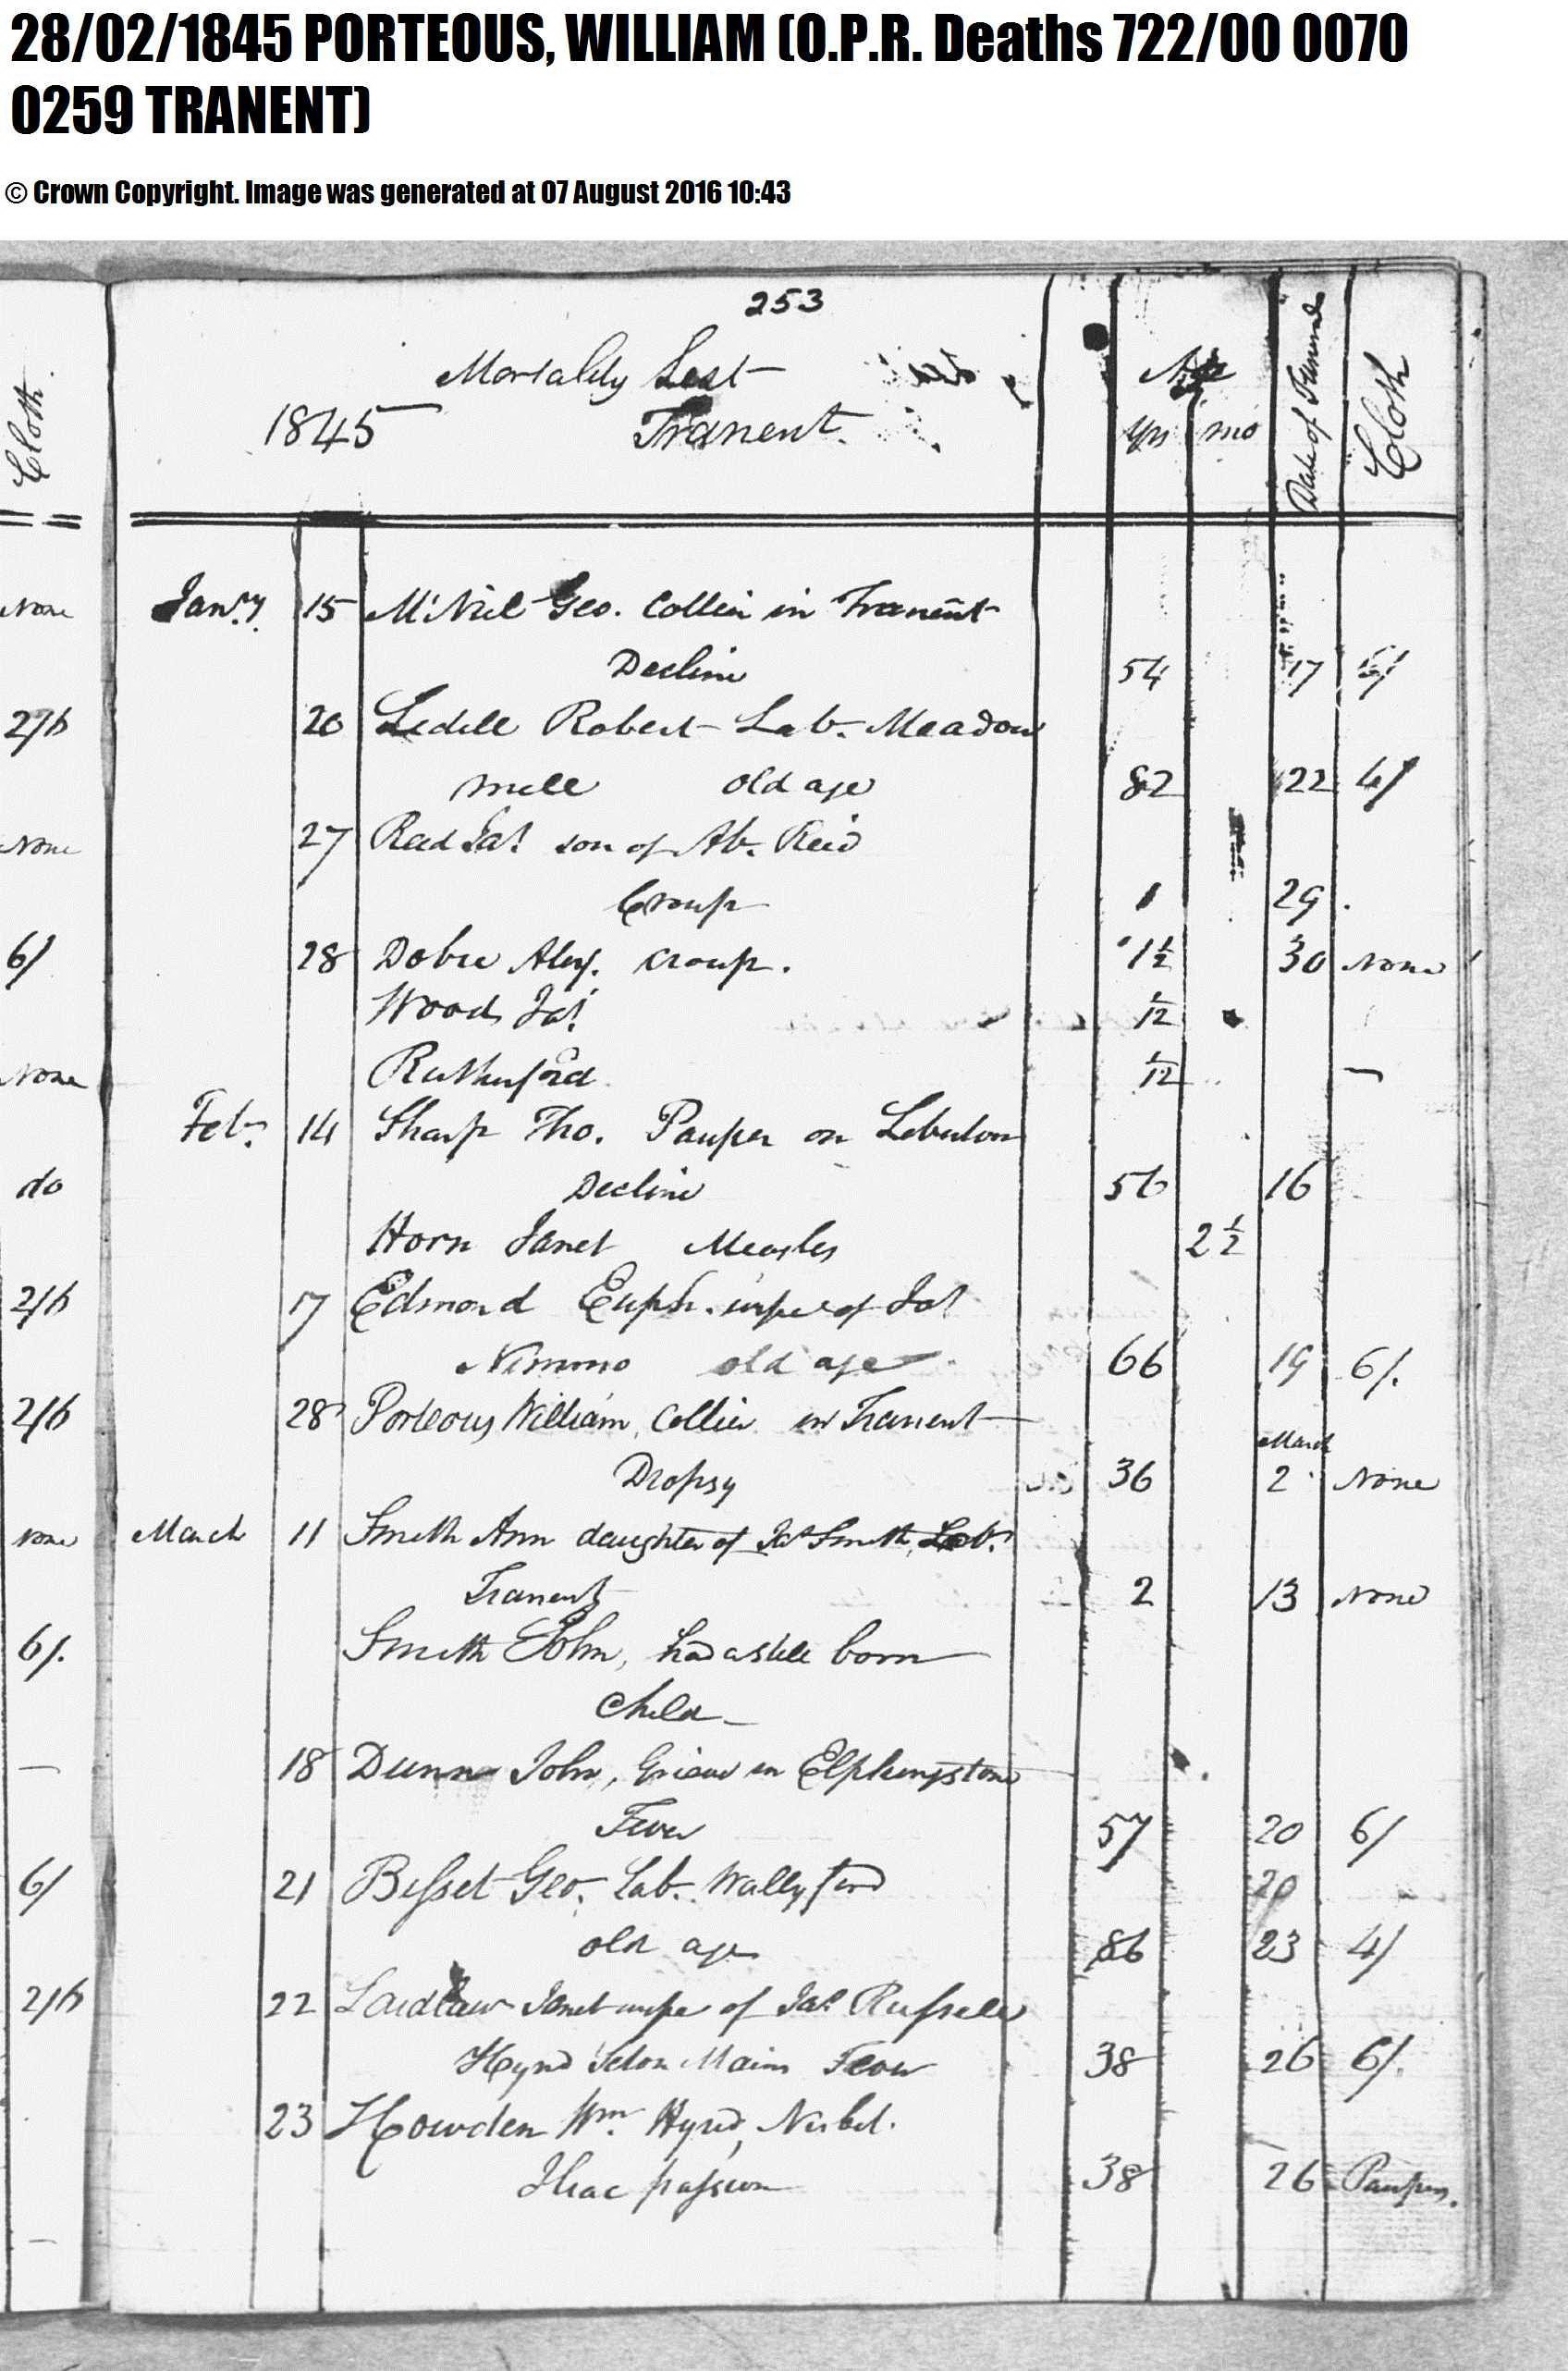 28/02/1845 PORTEOUS, WILLIAM (O.P.R. Deaths 722/00 0070
0259 TRANENT)
© Crown Copyright. Image was generated at 07 August 2016 10:43
253
Mortality List
1845 Tranent.
Age
Yrs mo
Date of Funeral
Cloth
Cloth
None Jany. 15 McNiel Geo. Collier in Tranent
Decline 54 17 6/
2/6 20 Ledell Robert Lab. Meadow
mill old age 82 22 4/
None 27 Reid Jas. son of Ab. Reid
Croup 1 29
6/ 28 Dobie Alexr. Croup. 1½ 30 None
Wood Jas. 1/12
None Rutherford 1/12 —
Feb. 14 Sharp Tho. Pauper on
do Decline 56 16
Horn Janet Measles 2½
2/6 17 Edmond Euph. wife of Jas
Nimmo old age 66 19 6/.
2/6 28 Porteous William, Collier in Tranent
Dropsy 36 March 2 None
None March 11 Smith Ann daughter of Jas Smith, Lab.
Tranent 2 13 None
6/. Smith John, had a still born
Child —
— 18 Dunn John, Grieve in Elphingstone
Fever 57 20 6/
6/ 21 Bisset Geo. Lab. Wallyford 20
old age 86 23 4/
2/6 22 Laidlaw Janet wife of Jas. Russell
Hynd Seton Mains Fever 38 26 6/.
23 Howden Wm. Hynd, Nisbet.
Iliac passion 38 26 Pauper.
—